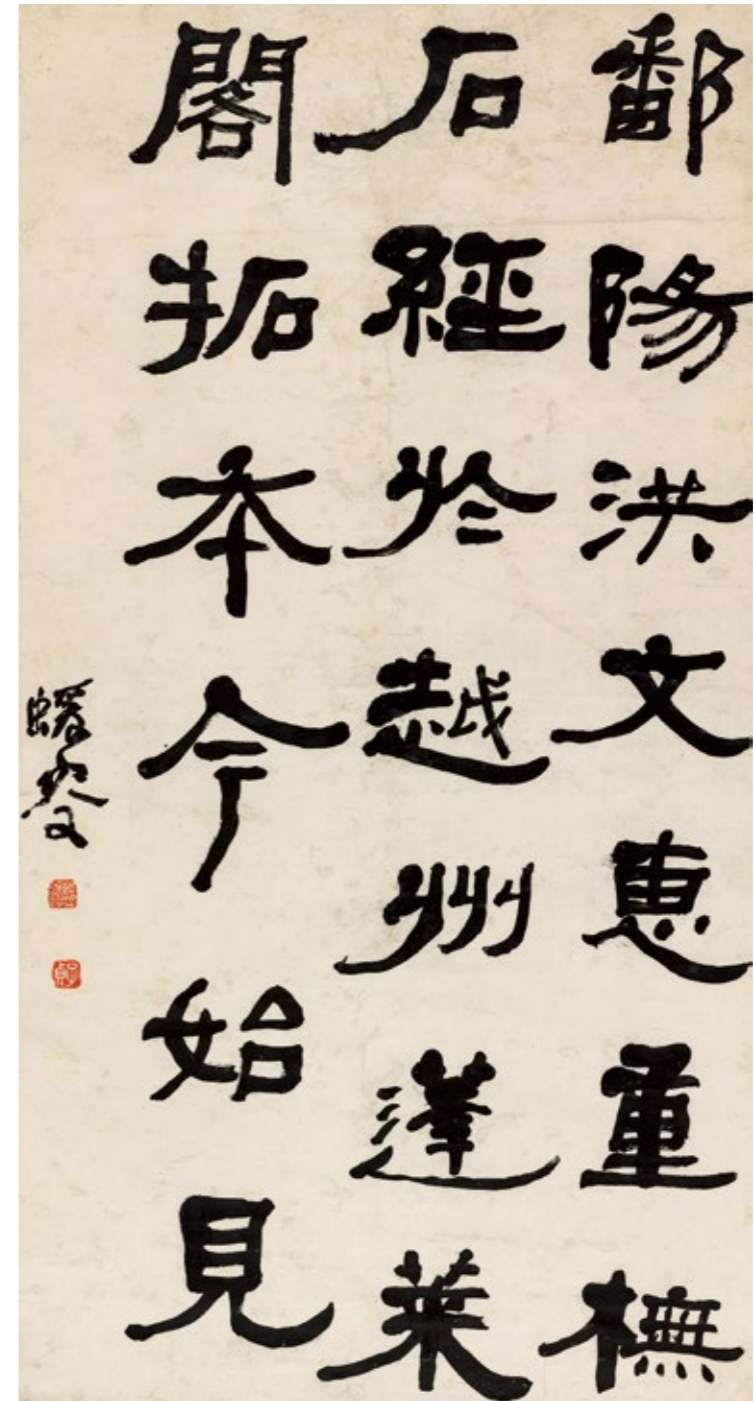 鄱陽洪文惠重橅
石經於越州蓬萊
閣拓本今始見
蝯叟